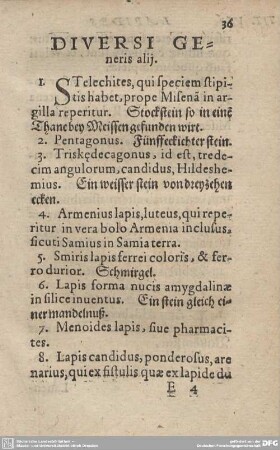 36
DIVERSI GE=
neris alij.
1. STelechites, qui speciem stipi-
tis habet, prope Misenā in ar-
gilla reperitur. Stockstein so in einē
Thane bey Meissen gefunden wirt.
2. Pentagonus. Fünffeckichter stein.
3. Triskędecagonus, id est, trede-
cim angulorum, candidus, Hildeshe-
mius. Ein weisser stein von dreyzehen
ecken.
4. Armenius lapis, luteus, qui repe-
ritur in vera bolo Armenia inclusus,
sicuti Samius in Samia terra.
5. Smiris lapis ferrei coloris, & fer-
ro durior. Schmirgel.
6. Lapis forma nucis amygdalinæ
in silice inuentus. Ein stein gleich ei-
ner mandelnuß.
7. Menoides lapis, siue pharmaci-
tes.
8. Lapis candidus, ponderosus, are
narius, qui ex fistulis quæ ex lapide du
E 4